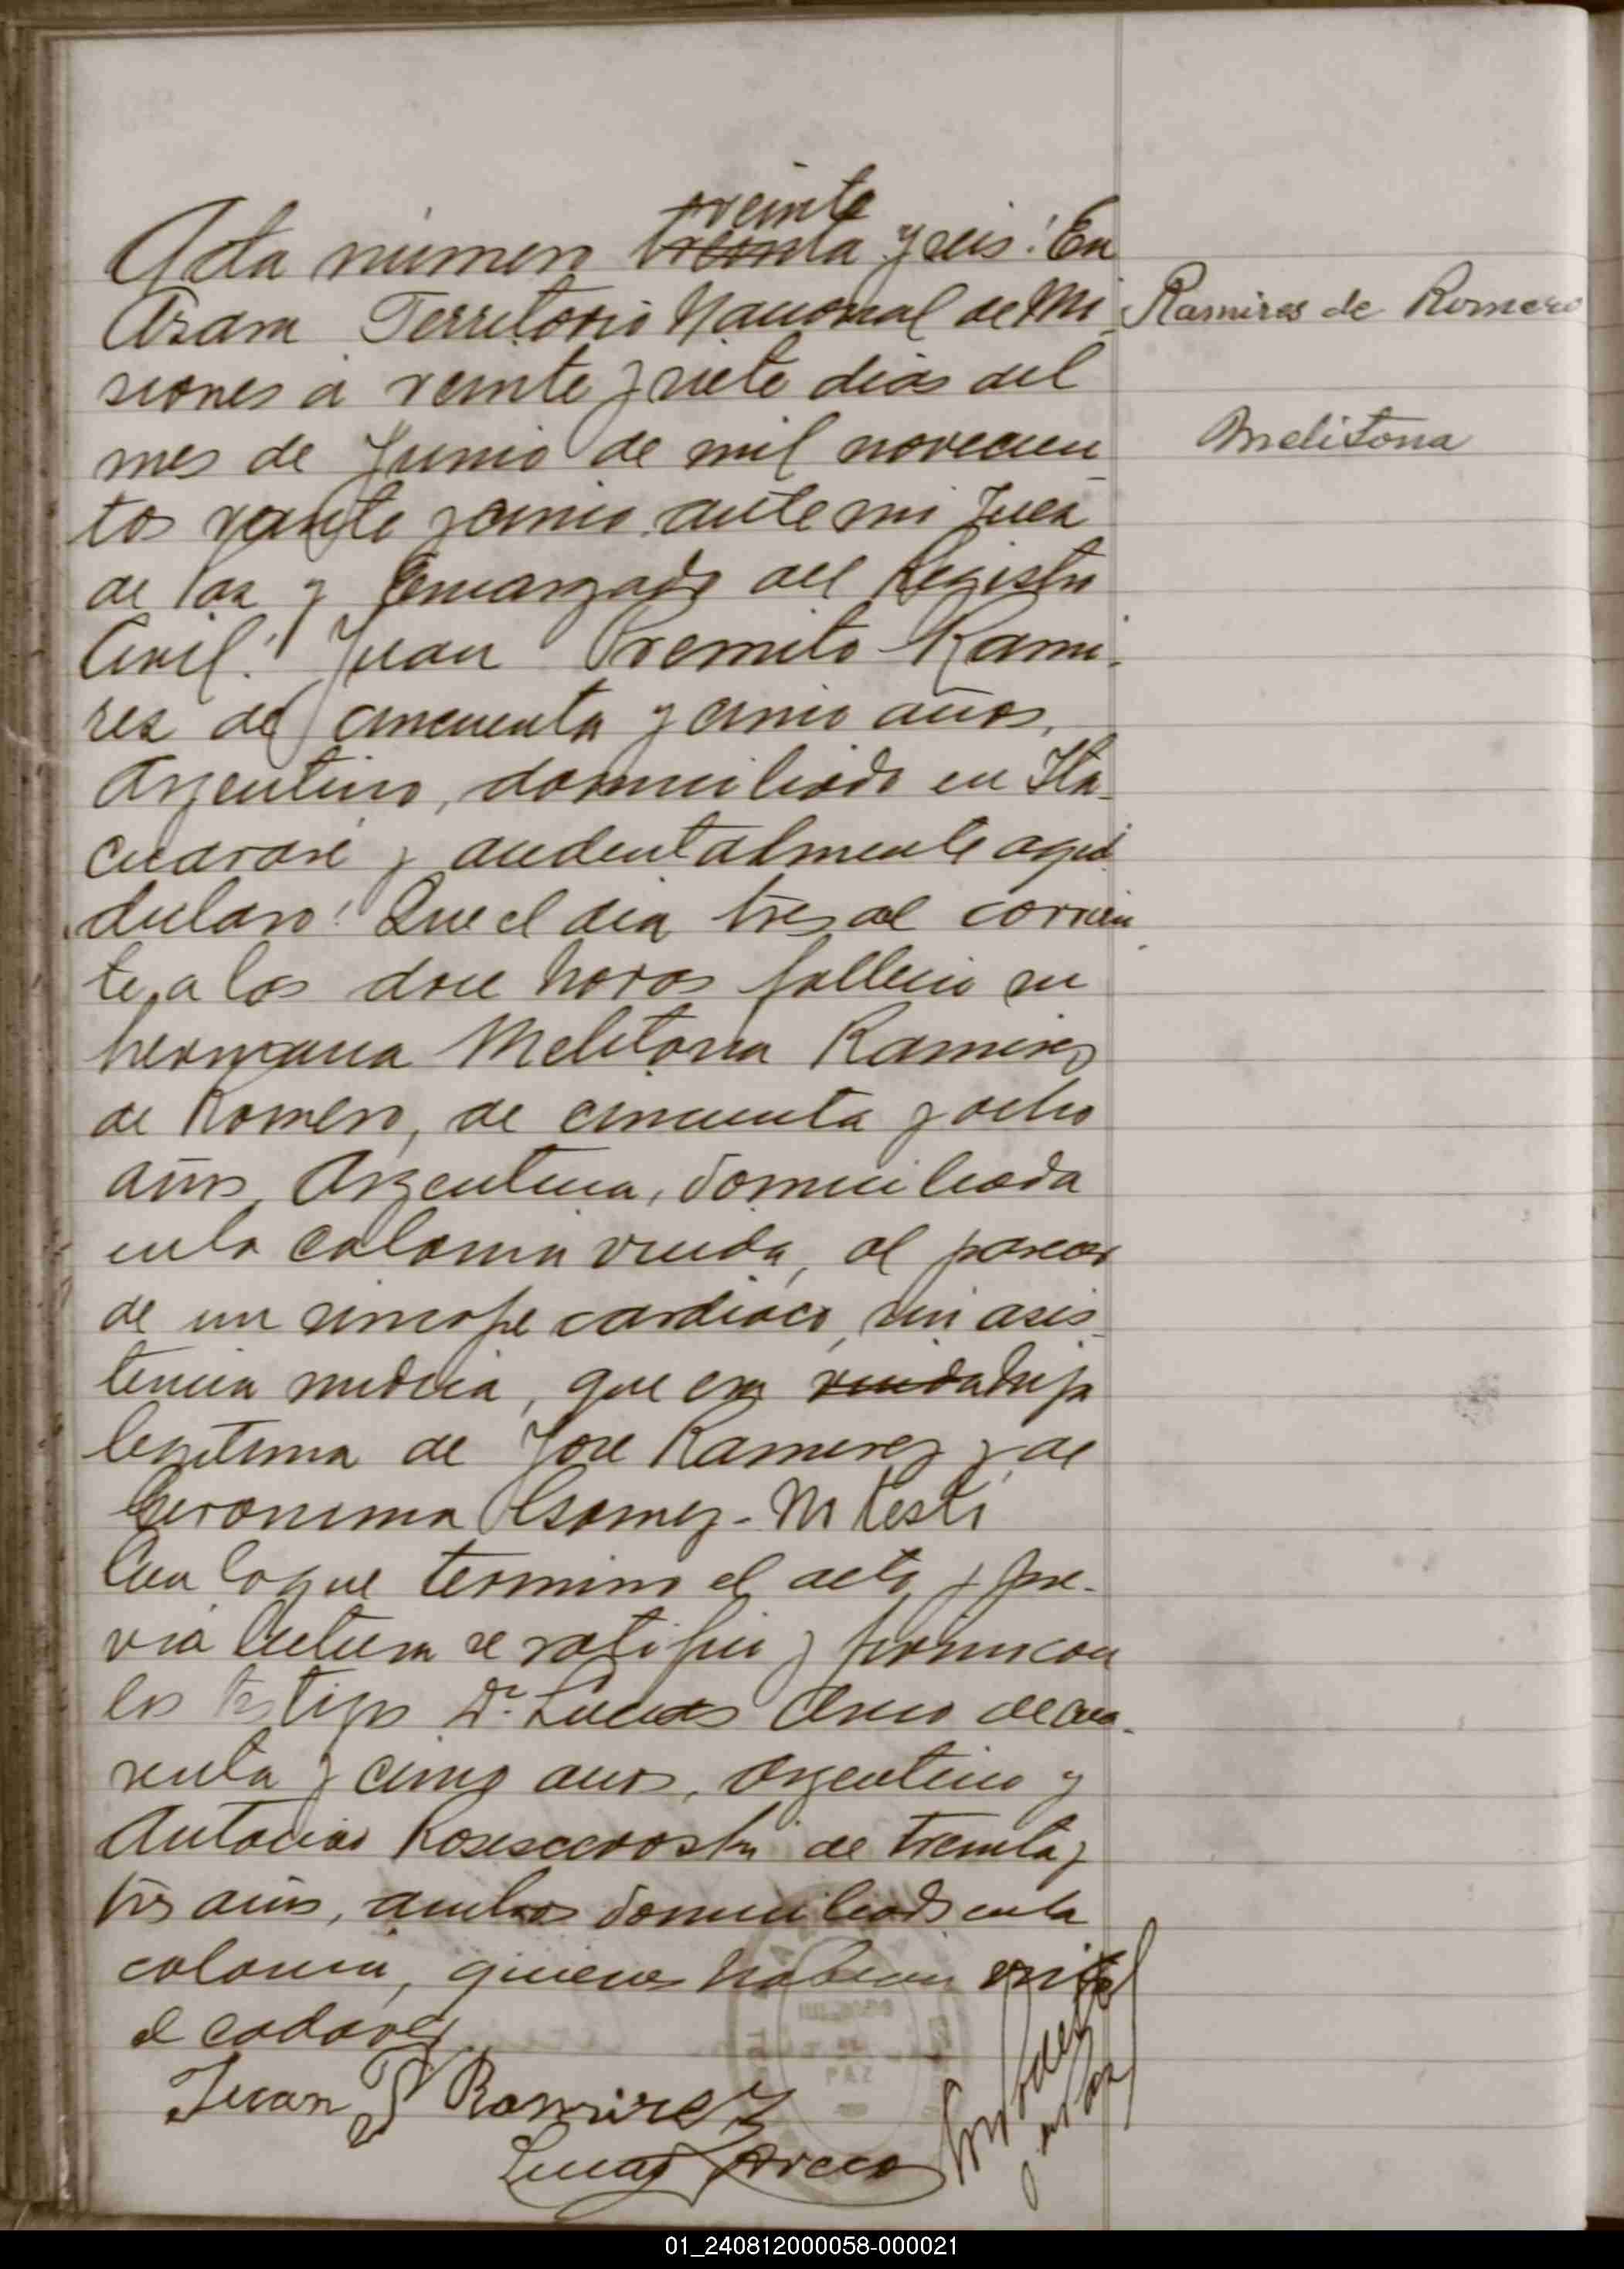 veinte
Acta número treinta y seis: En
Azara Territorio Nacional de Mi
siones á veinte y siete dias del
mes de Junio de mil novecien
tos veinte y cinco ante mi Juez
de Paz y Encargado del Registro
Civil: Juan Ramí-
rez de cincuenta y cinco años,
Argentino, domiciliado en Ita-
cuararé y accidentalmente aquí
declaro: Que el dia tres del corrien
te, a las doce horas fallecio su
hermana Melitona Ramirez
de Romero, de cincuenta y ocho
años, Argentina, domiciliada
en la colonia viuda, al parecer
de un sincope cardiaco, sin asis
tencia medica, que era viuda hija
legitima de José Ramirez y de
Geronima Gomez - 
Con lo que termino el acto, y pre-
via lectura se ratifico y firmó con
los testigos Dn. Lucas Areco de cua-
renta y cinco años, Argentino y
Antonio de treinta y
tres años, ambos domiciliados en la
colonia, quienes habian visto
el cadaver
Juan P Ramirez
Lucas Areco
Ramires de Romero
Melitona
01_240812000058-000021